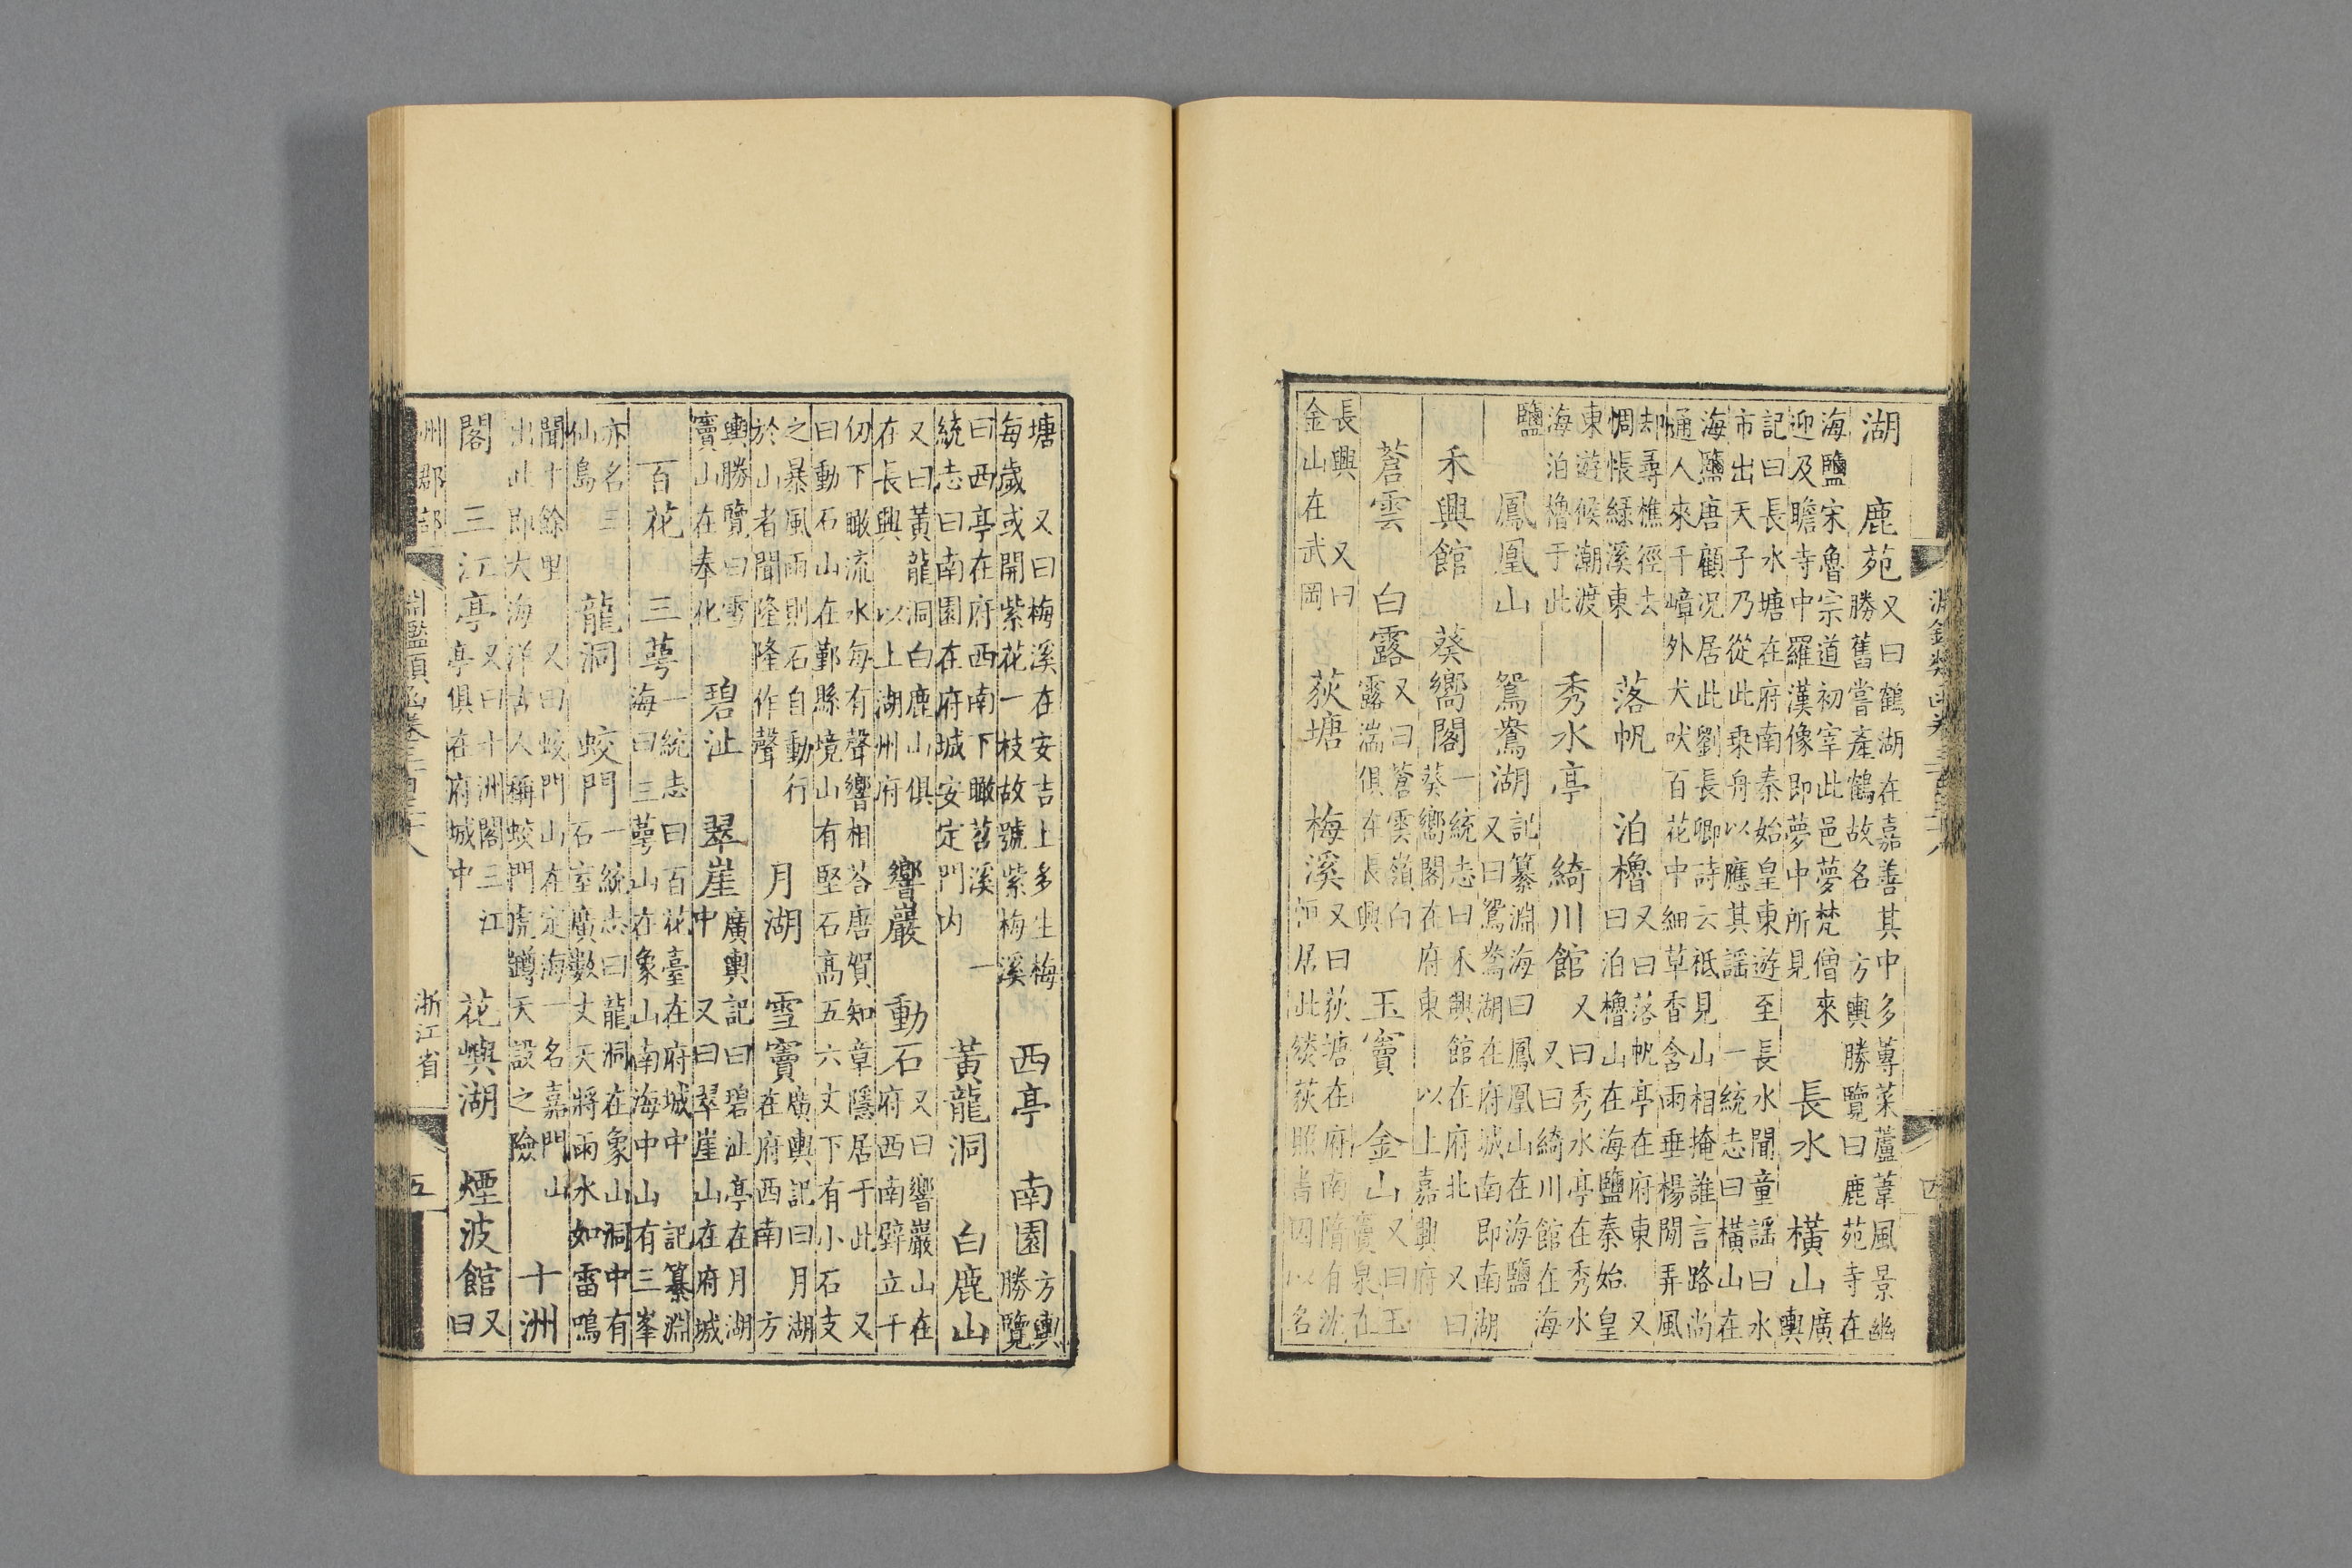 湖 鹿苑 又曰鶴湖在嘉善其中多蓴菜蘆葦風景幽
勝舊嘗產鶴故名 方輿勝覽曰鹿苑寺在
海鹽宋魯宗道初宰此邑夢梵僧來
迎及瞻寺中羅漢像即夢中所見
長水 橫山 廣
輿
記曰長水塘在府南秦始皇東遊至長水聞童謠曰水
市出天子乃從此乘舟以應其謠 一統志曰橫山在
海鹽唐顧況居此劉長卿詩云祇見山相掩誰言路尚
通人來千嶂外犬吠百花中細草香含雨垂楊閒弄風
却尋樵徑去
惆悵綠溪東
落帆 泊櫓 又曰落帆亭在府東 又
曰泊櫓山在海鹽秦始皇
東遊候潮渡
海泊櫓于此
秀水亭 綺川館 又曰秀水亭在秀水
又曰綺川館在海
鹽 鳳凰山 鴛鴦湖 記纂淵海曰鳳凰山在海鹽
又曰鴛鴦湖在府城南即南湖
禾興館 葵嚮閣 一統志曰禾興館在府北 又曰
葵嚮閣在府東 以上嘉興府
蒼雲 白露 又曰蒼雲嶺白
露湍俱在長興
玉竇 金山 又曰玉
竇泉在
長興 又曰
金山在武岡
荻塘 梅溪 又曰荻塘在府南隋有沈
恒居此 荻照書因以名
塘 又曰梅溪在安吉上多生梅
每歲或開紫花一枝故號紫梅溪
西亭 南園 方輿
勝覽
曰西亭在府西南下瞰苕溪 一
統志曰南園在府城安定門内
黃龍洞 白鹿山
又曰黃龍洞白鹿山俱
在長興 以上湖州府
響巖 動石 又曰響巖山在
府西南壁立千
仞下瞰流水每有聲響相荅唐賀知章隱居于此 又
曰動石山在鄞縣境山有堅石高五六丈下有小石支
之暴風雨則石自動行
於山者聞隆隆作聲
月湖 雪竇 廣輿記曰月湖
在府西南 方
輿勝覽曰雪
竇山在奉化
碧沚 翠崖 廣輿記曰碧沚亭在月湖
中 又曰翠崖山在府城
百花 三萼 一統志曰百花臺在府城中 記纂淵
海曰三萼山在象山南海中山有三峯
亦名三
仙島
龍洞 蛟門 一統志曰龍洞在象山洞中有
石室廣數丈天將雨水如雷鳴
聞十餘里 又曰蛟門山在定海一名嘉門山
出此即大海洋古人稱蛟門虎蹲天設之險
十洲
閣 三江亭 又曰十洲閣三江
亭俱在府城中
花嶼湖 煙波館 又
曰
州郡部 浙江省 五